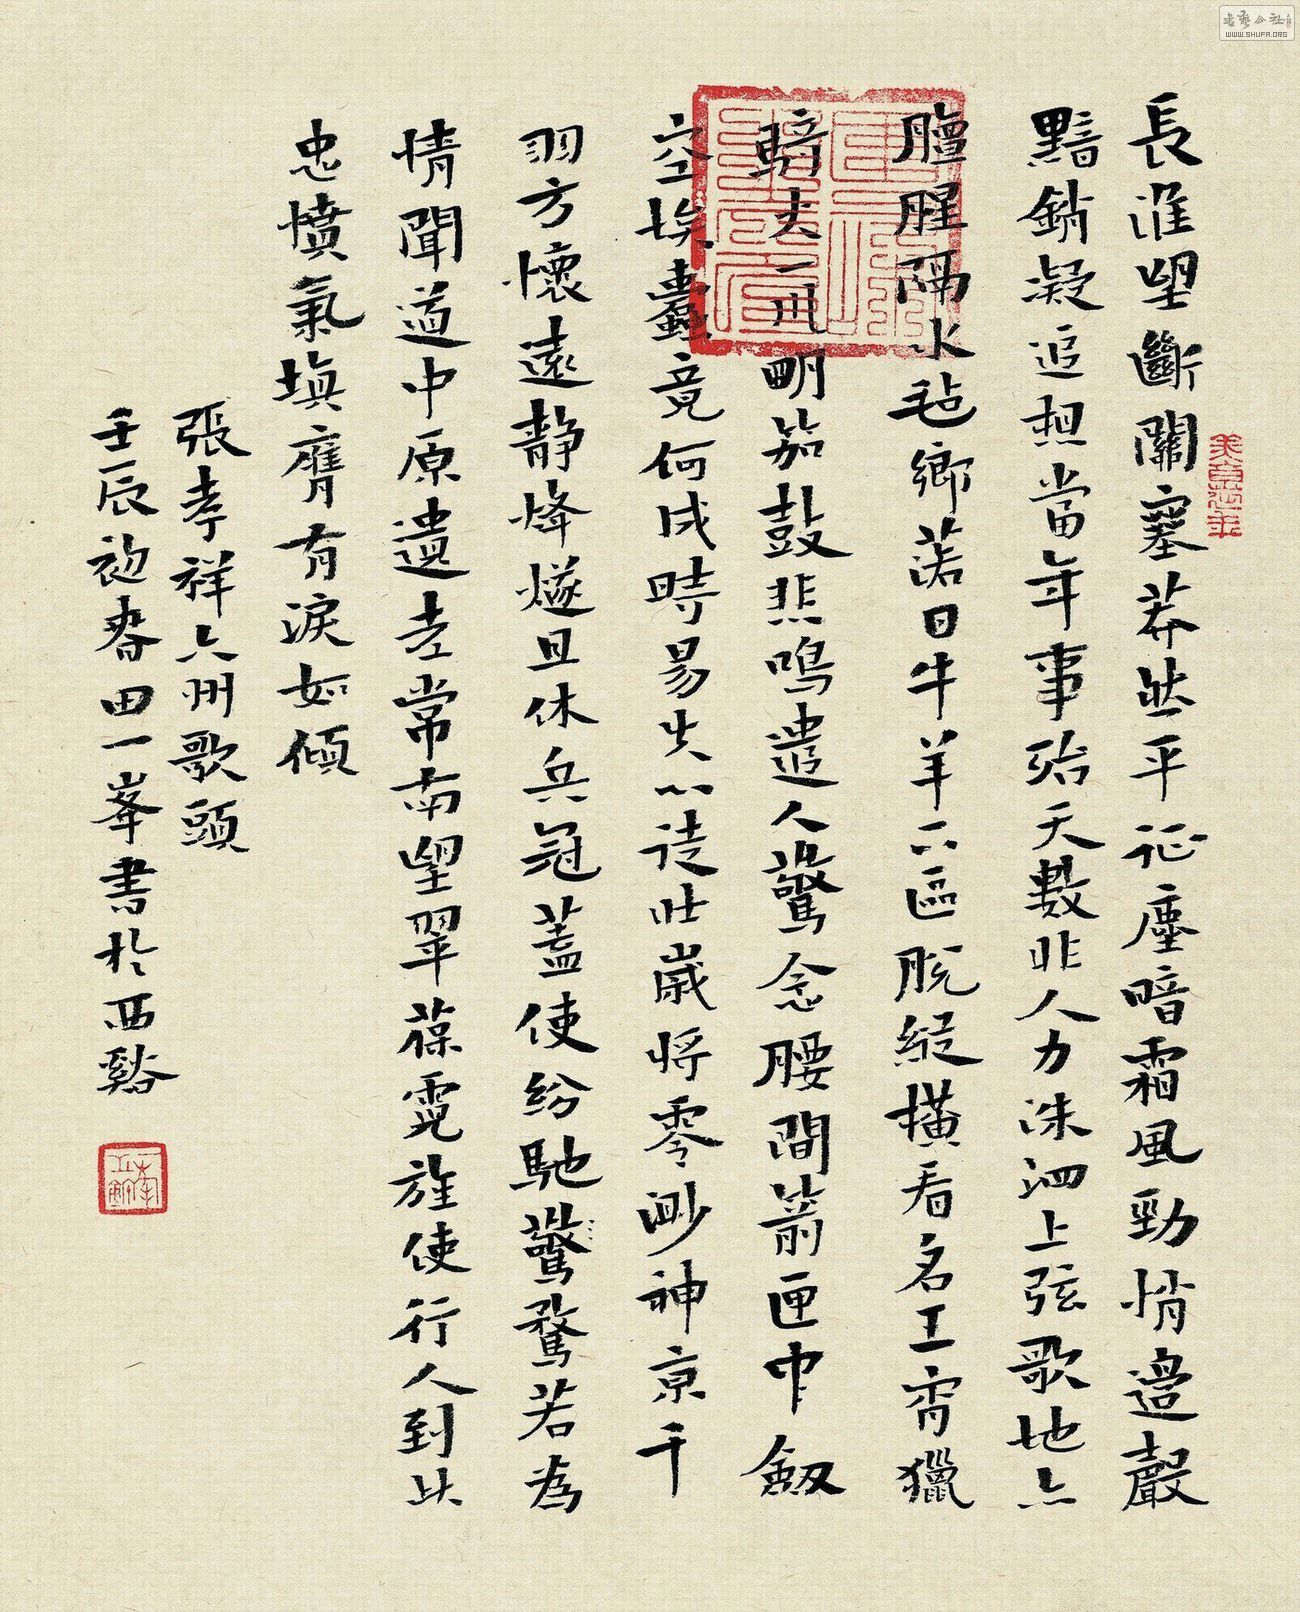 長淮望斷關塞莽然平征塵暗霜風勁悄邊聲
黯銷凝追想當年事殆天數非人力洙泗上弦歌地亦
膻腥隔水毡鄉落日牛羊下區脫縱橫看名王宵獵
騎火一川明笳鼓悲鳴遣人驚念腰間箭匣中釼
空埃蠹竟何成時易失心徒壯歲將零渺神京干
羽方懷遠靜烽燧且休兵冠蓋使紛馳驚騖若為
情聞道中原遺老常南望翠葆霓旌使行人到此
忠憤氣填膺有淚如傾
張孝祥六州歌頭
壬辰初春田一峯書於西谿
書藝公社
WWW.SHUFA.ORG